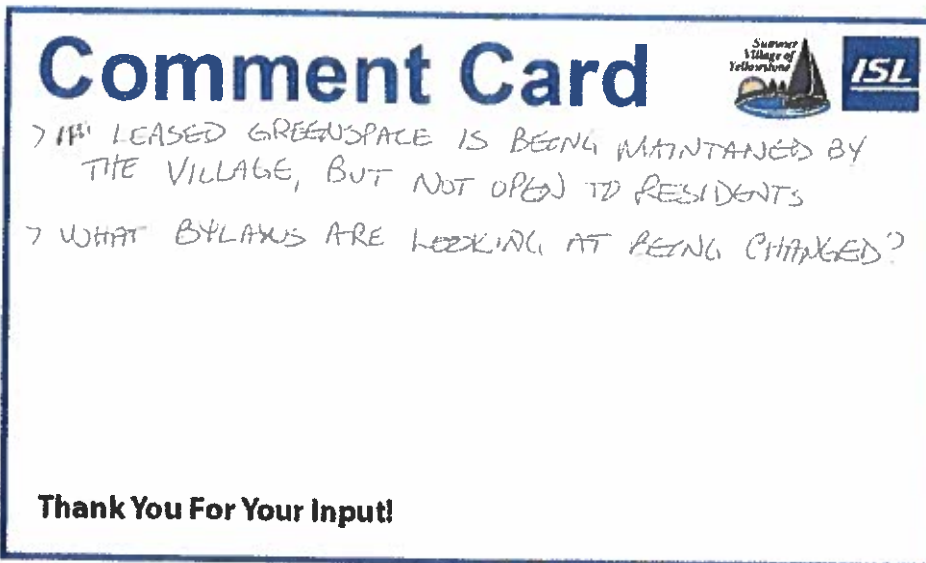 Comment Card
Summer
Village of
Yellowstone
ISL
> LEASED GREENSPACE IS BEING MAINTANED BY
THE VILLAGE, BUT NOT OPEN TO RESIDENTS
> WHAT BYLAWS ARE LOOKING AT BEING CHANGED?
Thank You For Your Input!